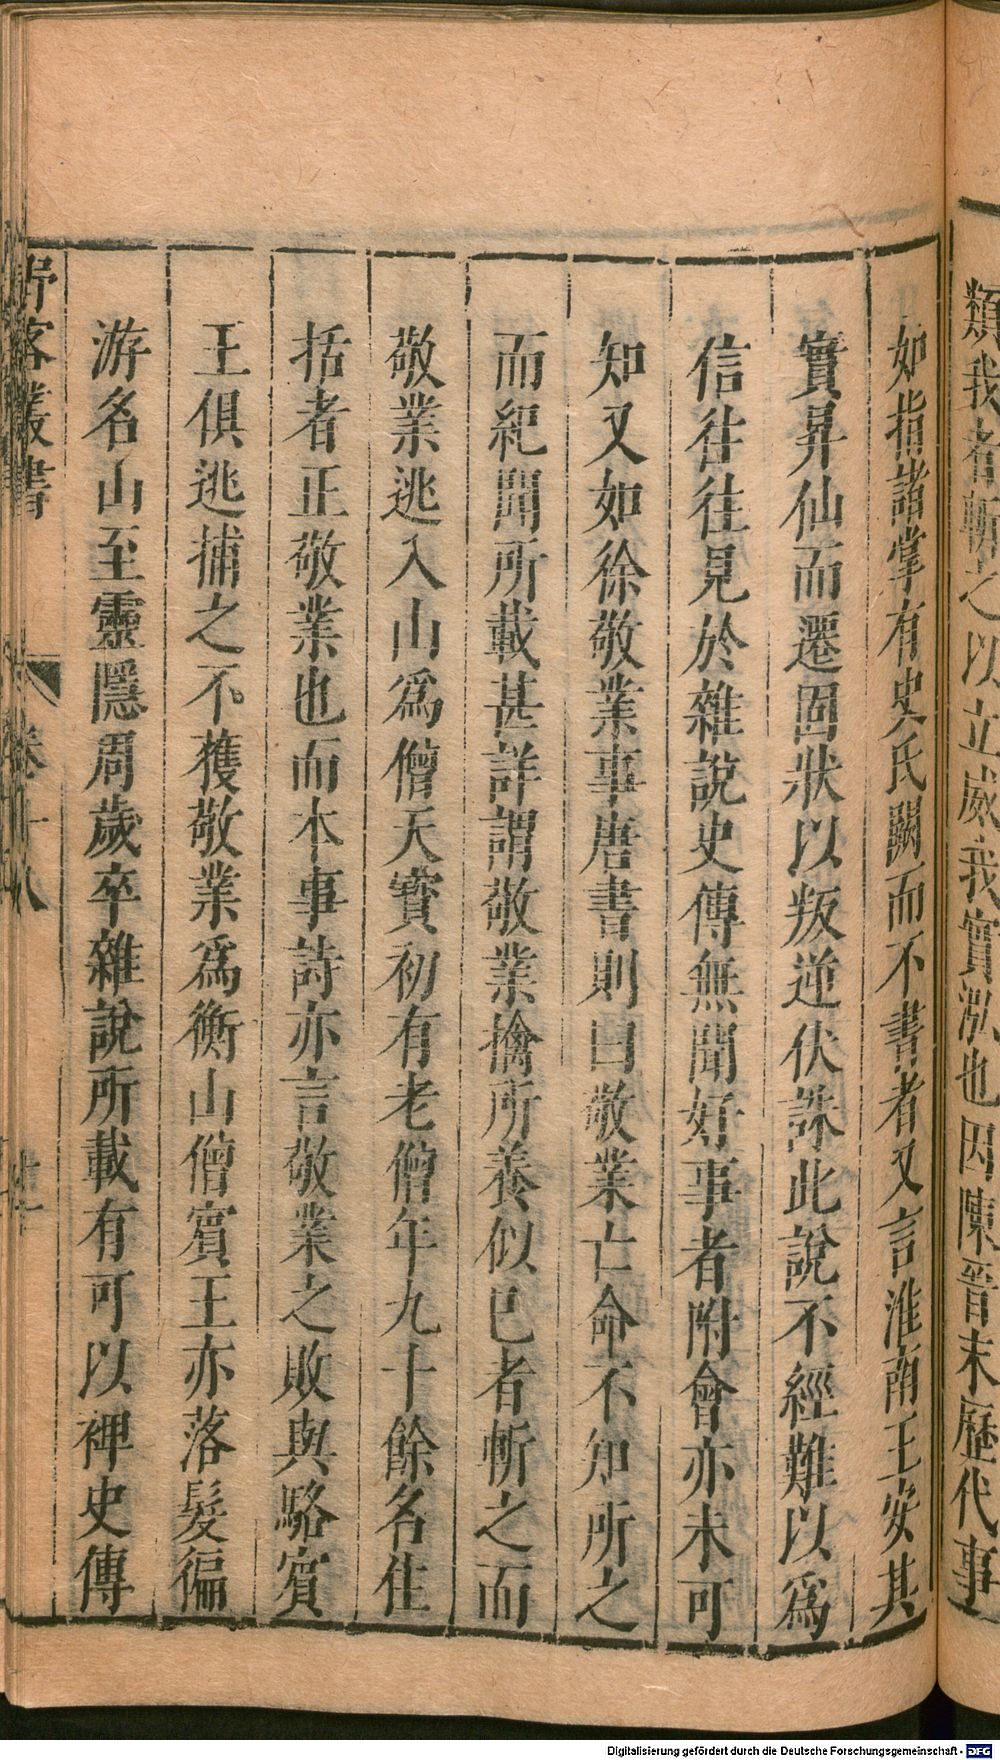 類我者斬之以立威我實泓也因陳晉末歷代事
如指諸掌有史氏闕而不書者又言淮南王安其
實昇仙而遷固狀以叛逆伏誅此說不經難以爲
信往往見於雜說史傳無聞好事者附會亦未可
知又如徐敬業事唐書則曰敬業亡命不知所之
而紀聞所載甚詳謂敬業擒所養似已者斬之而
敬業逃入山爲僧天寶初有老僧年九十餘名住
括者正敬業也而本事詩亦言敬業之敗與駱賓
王俱逃捕之不獲敬業爲衡山僧賓王亦落髮徧
游名山至靈隱周歲卒雜說所載有可以裨史傳
野客叢書 卷十八
Digitalisierung gefördert durch die Deutsche Forschungsgemeinschaft - DFG